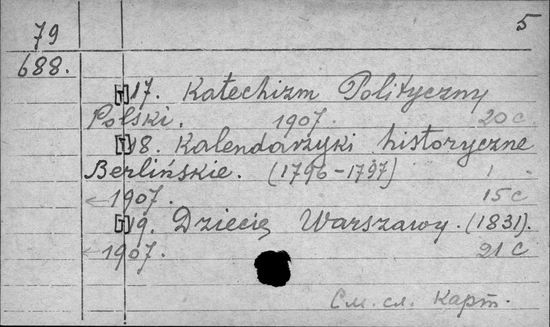 79
5
688.
[т] 17. Katechizm Polityczny
Polski. 1907. 20 c
[т] 18. Kalendarzyki historyczne
Berlińskie. (1796-1797)
1907. 15 c
[т] 19. Dziecię Warszawy. (1831).
1907. 21 c
См. сл. карт.